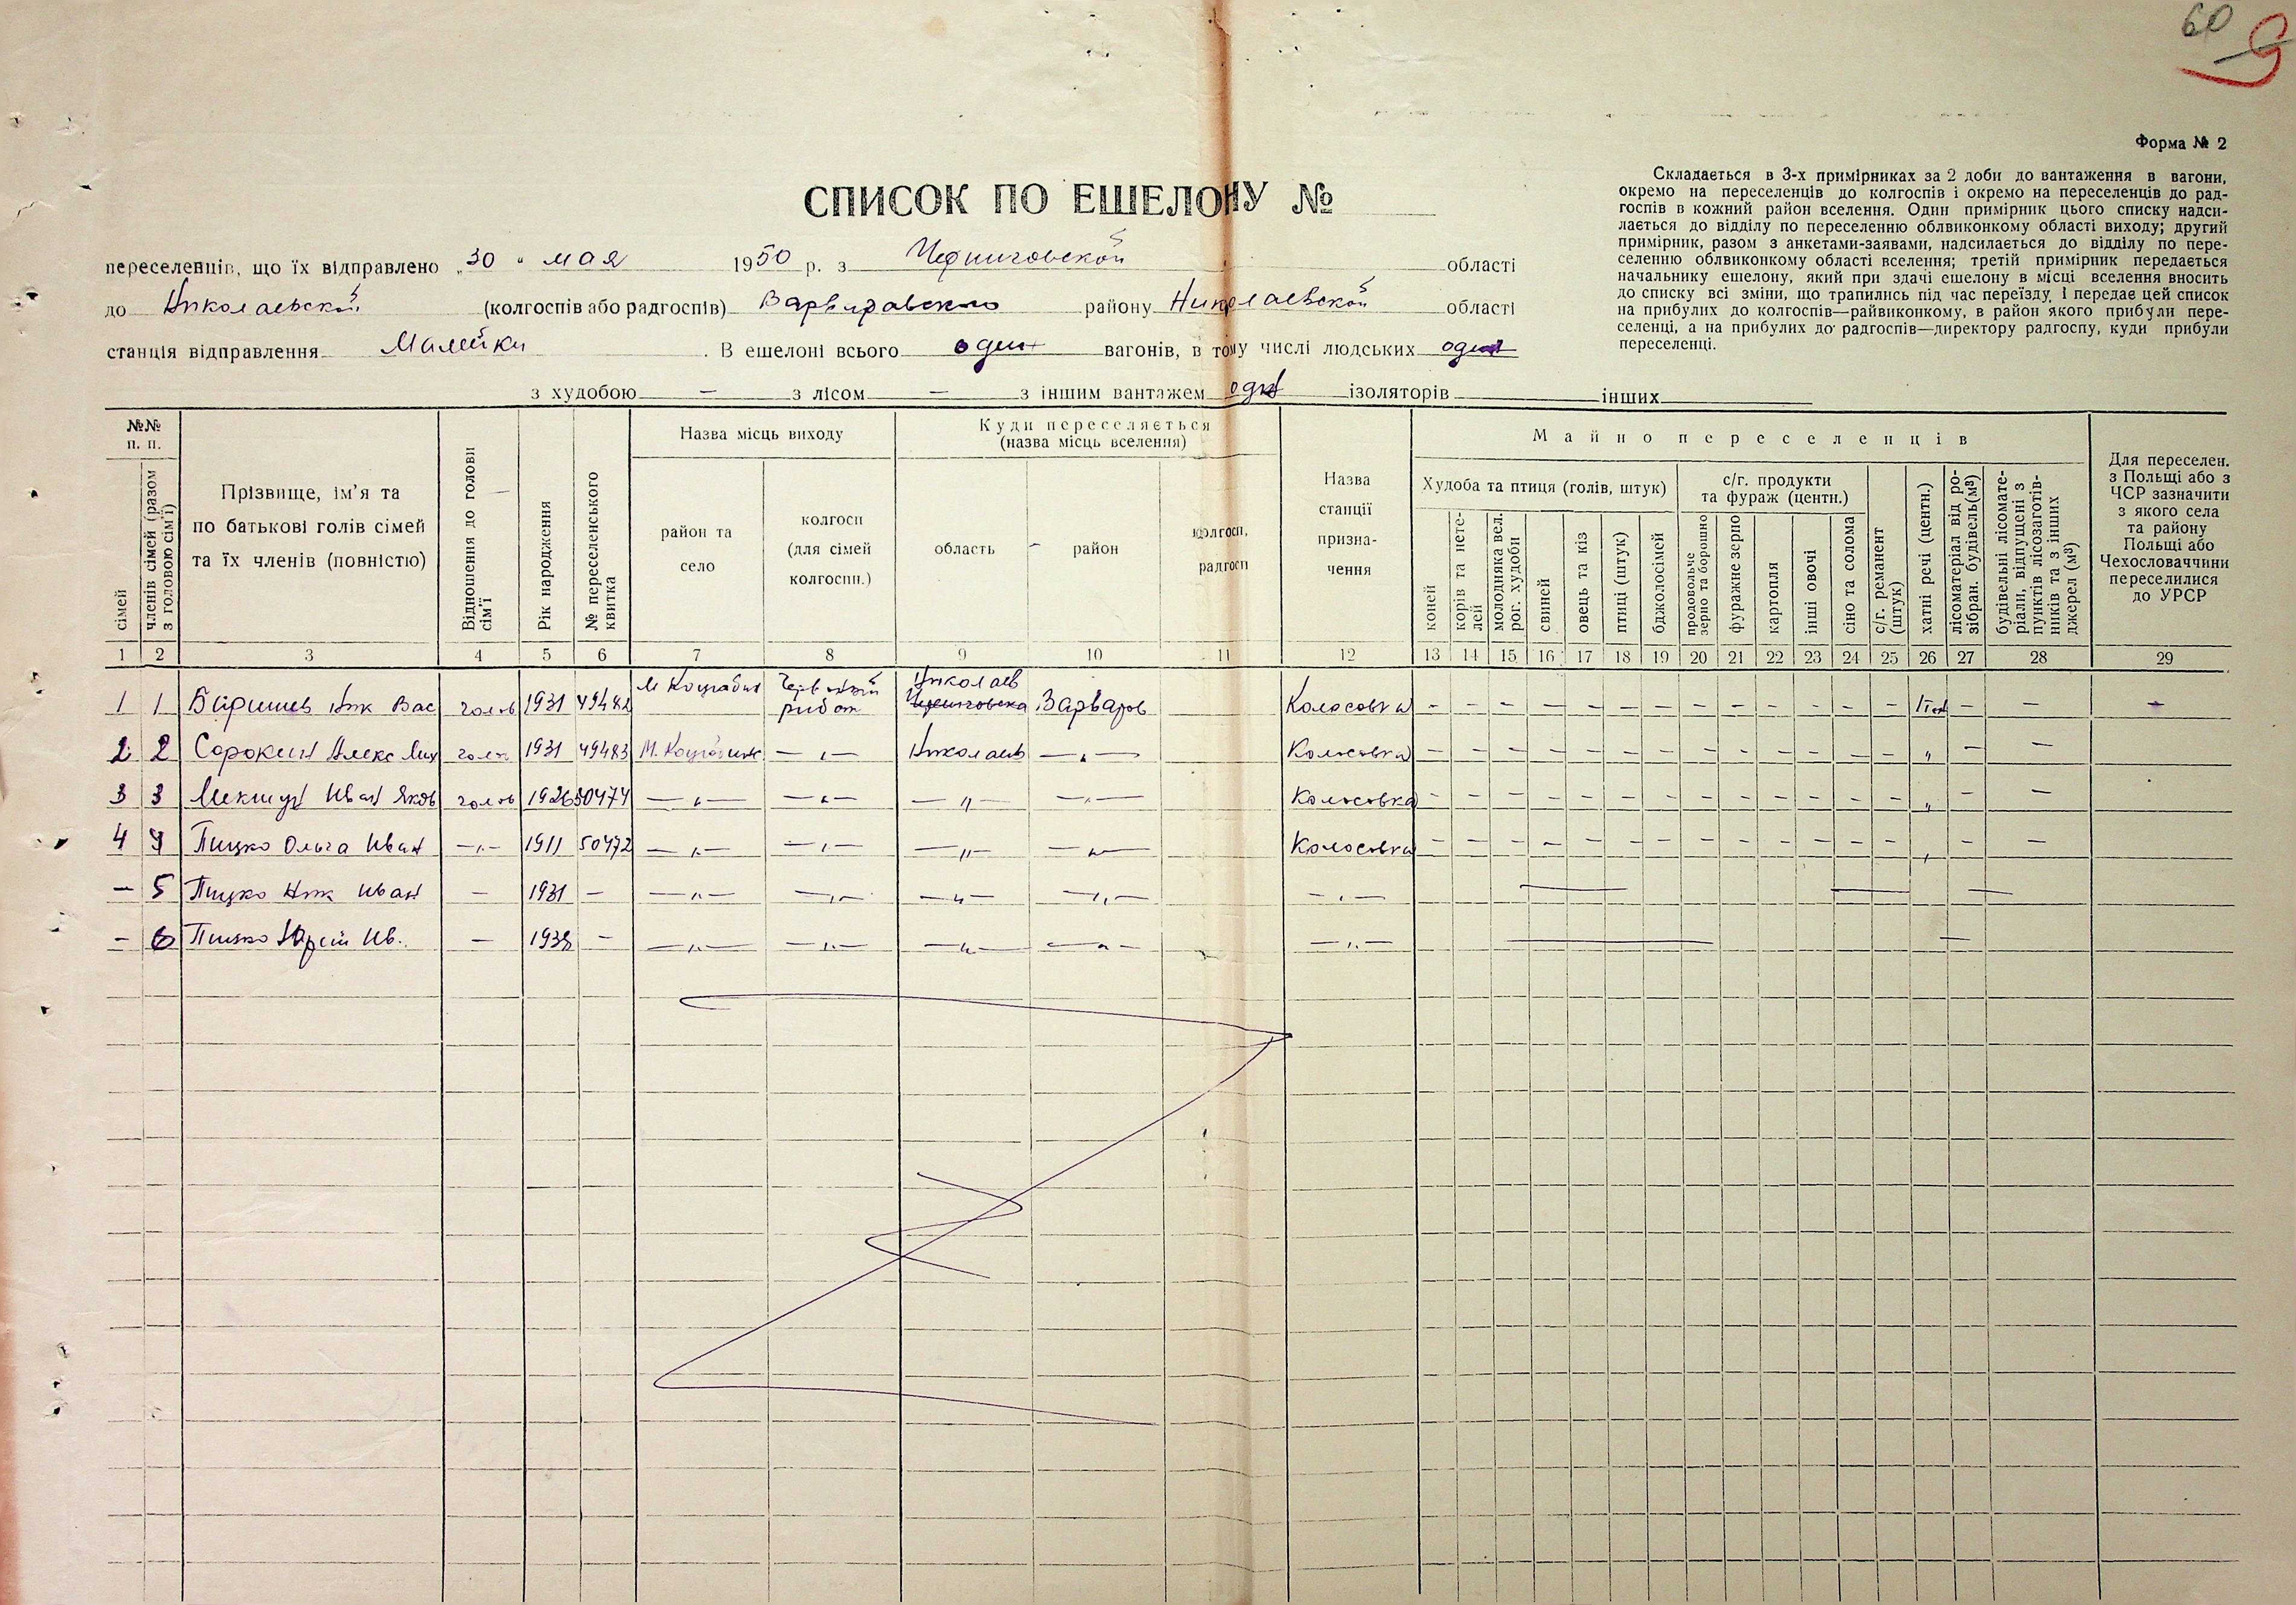 60
Форма № 2
СПИСОК ПО ЕШЕЛОНУ №
Складається в 3-х примірниках за 2 доби до вантаження в вагони,
окремо на переселенців до колгоспів і окремо на переселенців до рад-
госпів в кожний район вселення. Один примірник цього списку надси-
лається до відділу по переселенню облвиконкому області виходу; другий
примірник, разом з анкетами-заявами, надсилається до відділу по пере-
селенню облвиконкому області вселення; третій примірник передається
начальнику ешелону, який при здачі ешелону в місці вселення вносить
до списку всі зміни, що трапились під час переїзду і передає цей список
на прибулих до колгоспів—райвиконкому, в район якого прибули пере-
селенці, а на прибулих до радгоспів—директору радгоспу, куди прибули
переселенці.
переселенців, що їх відправлено „30" мая 1950 р. з Черниговской області
до Николаевской (колгоспів або радгоспів) Варваровского району Николаевской області
станція відправлення Малейки. В ешелоні всього один вагонів, в тому числі людських один
з худобою — з лісом — з іншим вантажем ізоляторів інших
№№ п. п.
сімей
членів сімей (разом з головою сім'ї)
Прізвище, ім'я та
по батькові голів сімей
та їх членів (повністю)
Відношення до голови сім'ї
Рік народження
№ переселенського квитка
Назва місць виходу
район та
село
колгосп
(для сімей
колгоспн.)
Куди переселяється
(назва місць вселення)
область
район
колгосп,
радгосп
Назва
станції
призна-
чення
Майно переселенців
Худоба та птиця (голів, штук)
коней
корів та нете-
лей
молодняка вел.
рог. худоби
свиней
овець та кіз
птиці (штук)
бджолосімей
с/г. продукти
та фураж (центн.)
продовольче
зерно та борошно
фуражне зерно
картопля
інші овочі
сіно та солома
с/г. реманент
(штук)
хатні речі (центн.)
лісоматеріал від ро-
зібран. будівель(м³)
будівельні лісомате-
ріали, відпущені з
пунктів лісозаготів-
ників та з інших
джерел (м³)
Для переселен.
з Польщі або з
ЧСР зазначити
з якого села
та району
Польщі або
Чехословаччини
переселилися
до УРСР
1 2 3 4 5 6 7 8 9 10 11 12 13 14 15 16 17 18 19 20 21 22 23 24 25 26 27 28 29
1 1 Вас голов 1931 49482 Николаев Варваров Колосовка - - - - - - - - - - - - - - - -
2 2 Сорокин Алекс Мих голов 1931 49483 — „ — Николаев — „ — Колосовка - - - - - - - - - - - - - „ - -
3 3 Иван Яков голов 1926 50474 — „ — — „ — — „ — — „ — Колосовка - - - - - - - - - - - - - „ - -
4 4 Пицко Ольга Иван — „ — 1911 50472 — „ — — „ — — „ — — „ — Колосовка - - - - - - - - - - - - - „ - -
- 5 Пицко Ник Иван - 1931 - — „ — — „ — — „ — — „ — — „ —
- 6 Пицко Юрий Ив. - 1938 - — „ — — „ — — „ — — „ — — „ —